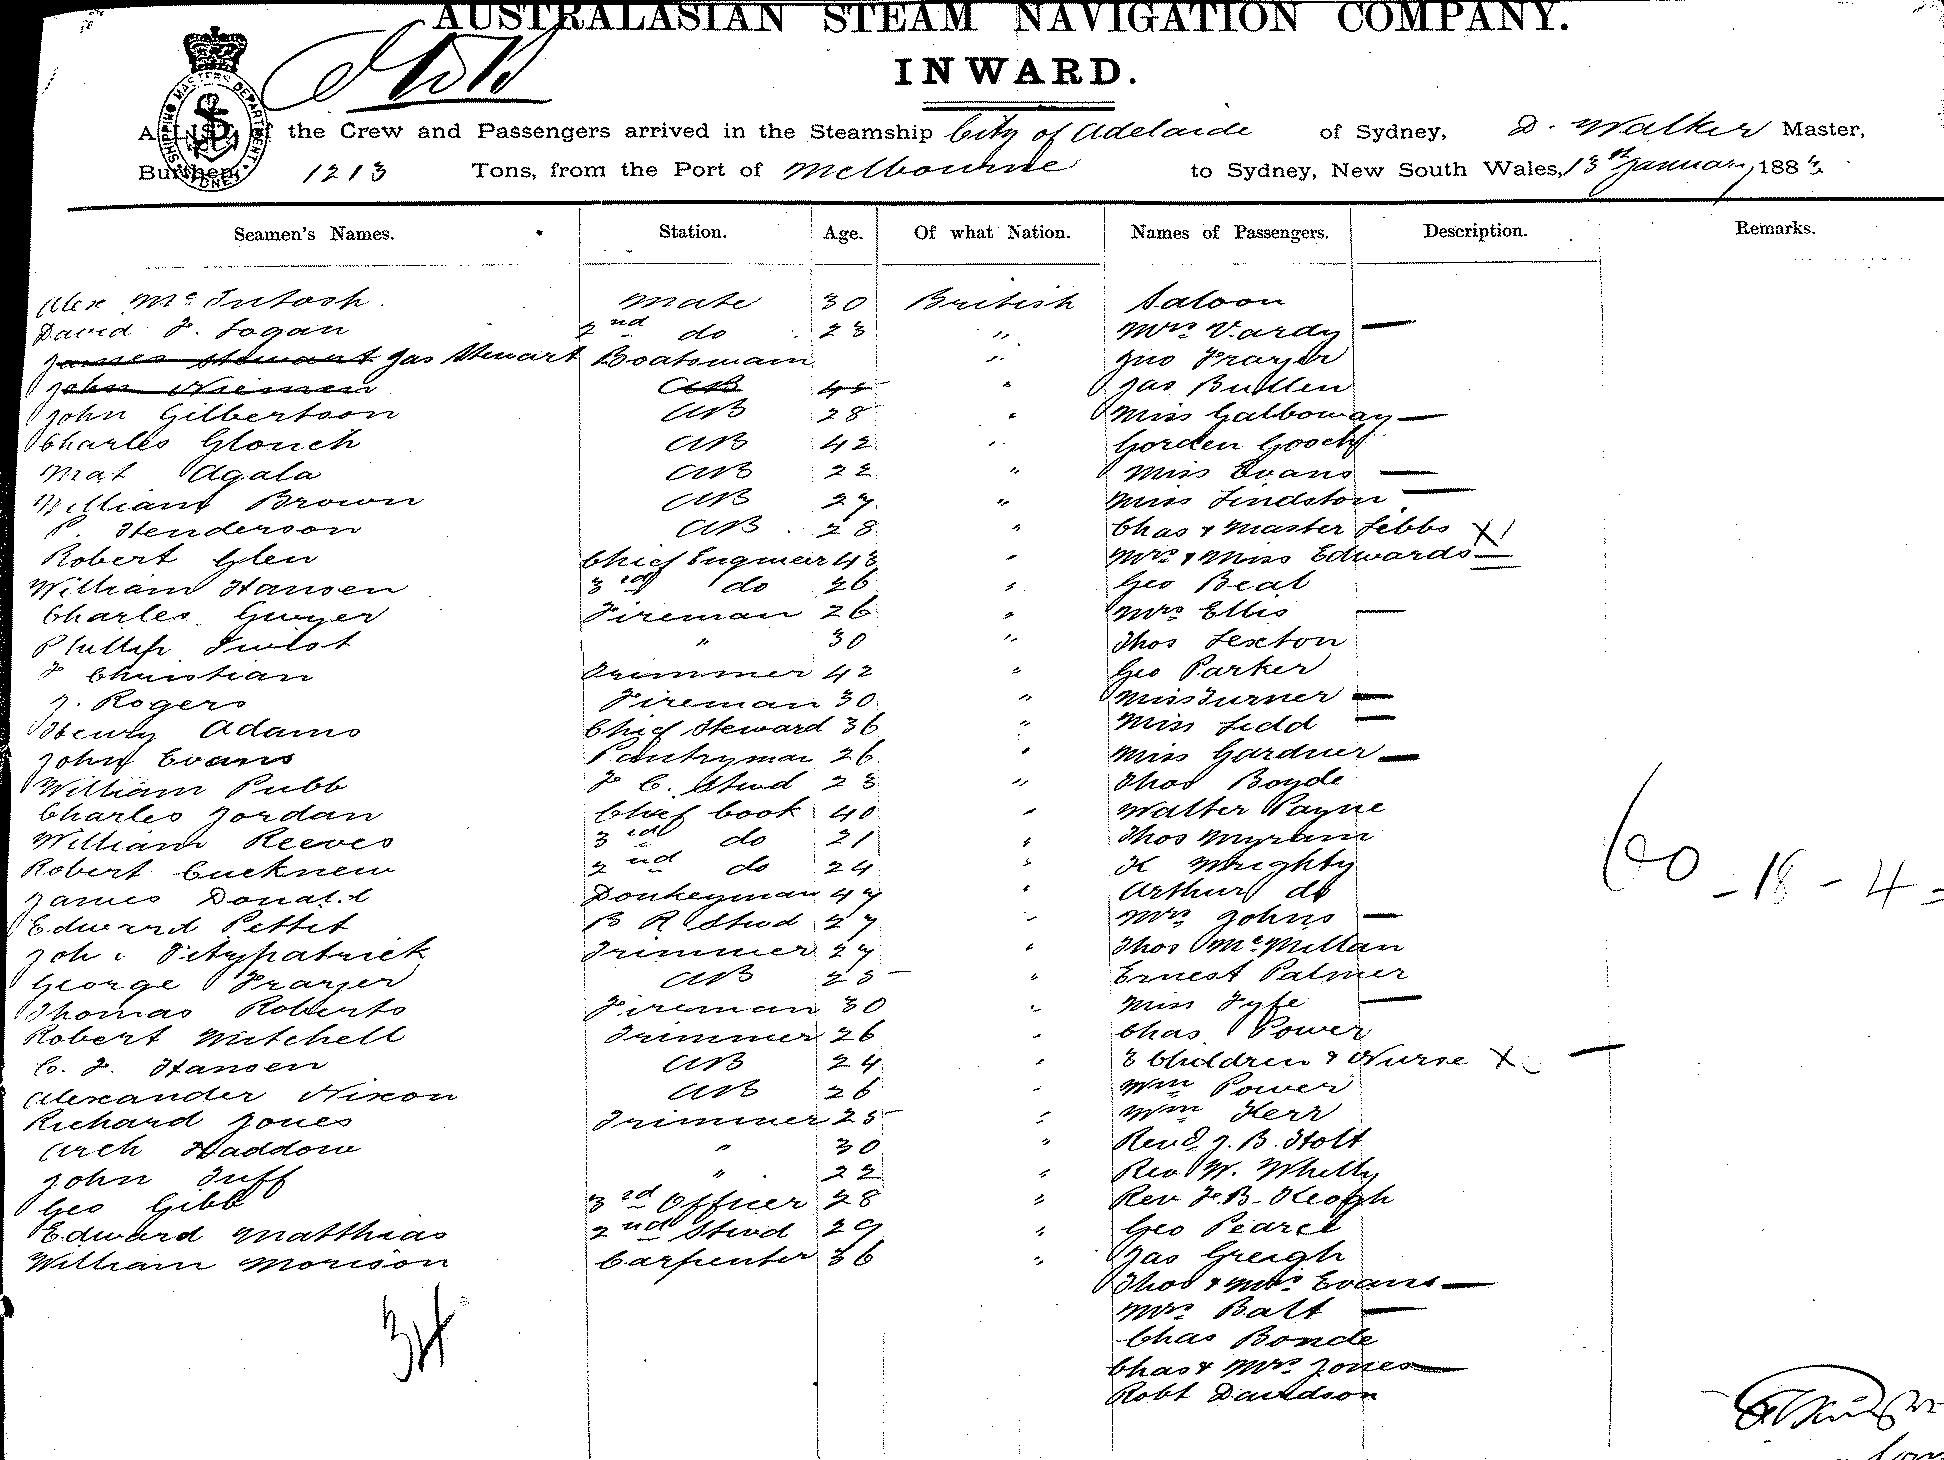 AUSTRALASIAN STEAM NAVIGATION COMPANY.
INWARD.
A LIST of the Crew and Passengers arrived in the Steamship City of Adelaide of Sydney, D. Walker Master,
Burthen 1213 Tons, from the Port of Melbourne to Sydney, New South Wales, 13th January 1883
SHIPPING MASTERS DEPARTMENT SYDNEY
Seamen's Names. Station. Age. Of what Nation. Names of Passengers. Description. Remarks.
Alex McIntosh Mate 30 British Saloon
David F. Logan 2nd do 23 " Mrs Vardy —
James Stewart Jas Stewart Boatswain " Jno Frazer
John Niemen AB 45 " Jas Bullen
John Gilbertson AB 28 " Miss Galboway —
Charles Glouch AB 42 " Gorden Gooch
Mat Agala AB 22 " Miss Evans —
William Brown AB 27 " Miss Lindston —
P. Henderson AB 28 " Chas & Master Libbs X
Robert Glen Chief Engineer 43 " Mrs & Miss Edwards —
William Hansen 3rd do 26 " Geo Beal
Charles Gwyer Fireman 26 " Mrs Ellis —
Phillip Twist " 30 " Thos Sexton
F Christian Trimmer 42 " Geo Parker
J. Rogers Fireman 30 " Miss Turner —
Henry Adams Chief Steward 36 " Miss Ledd —
John Evans Pantryman 26 " Miss Gardner —
William Pubb F C. Stwd 23 " Thos Boyde
Charles Jordan Chief Cook 40 " Walter Payne
William Reeves 3rd do 21 " Thos Myram
Robert Cucknew 2nd do 24 " H Wrighty
James Donald Donkeyman 47 " Arthur do
Edward Pettit B R Stwd 27 " Mrs Johns —
John Fitzpatrick Trimmer 27 " Thos McMillan
George Frazer AB 25 " Ernest Palmer
Thomas Roberts Fireman 30 " Miss Fyfe —
Robert Mitchell Trimmer 26 " Chas Power
C. F. Hansen AB 24 " 3 Children & Nurse X —
Alexander Nixon AB 26 " Wm Power
Richard Jones Trimmer 25 " Wm Kerr
Arch Haddow " 30 " Revd J. B. Holt
John Tuff " 22 " Rev W. Whelly
Geo Gibb 3rd Officer 28 " Rev F. B. Keogh
Edward Matthias 2nd Stwd 29 " Geo Pearce
William Morison Carpenter 36 " Jas Greigh
Thos & Mrs Evans —
Mrs Balt —
Chas Bonde
Chas & Mrs Jones —
Robt Davidson
34
60 - 18 - 4 -